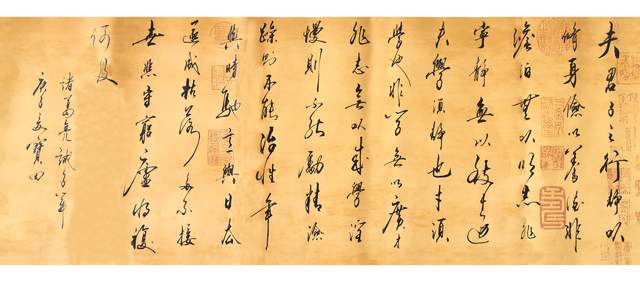 夫君子之行靜以
修身儉以養德非
澹泊無以明志非
寧靜無以致遠
夫學須靜也才須
學也非學無以廣才
非志無以成學淫
慢則不能勵精險
躁則不能治性年
與時馳意與日去
遂成枯落多不接
世悲守窮廬將復
何及
諸葛亮誡子
庚子